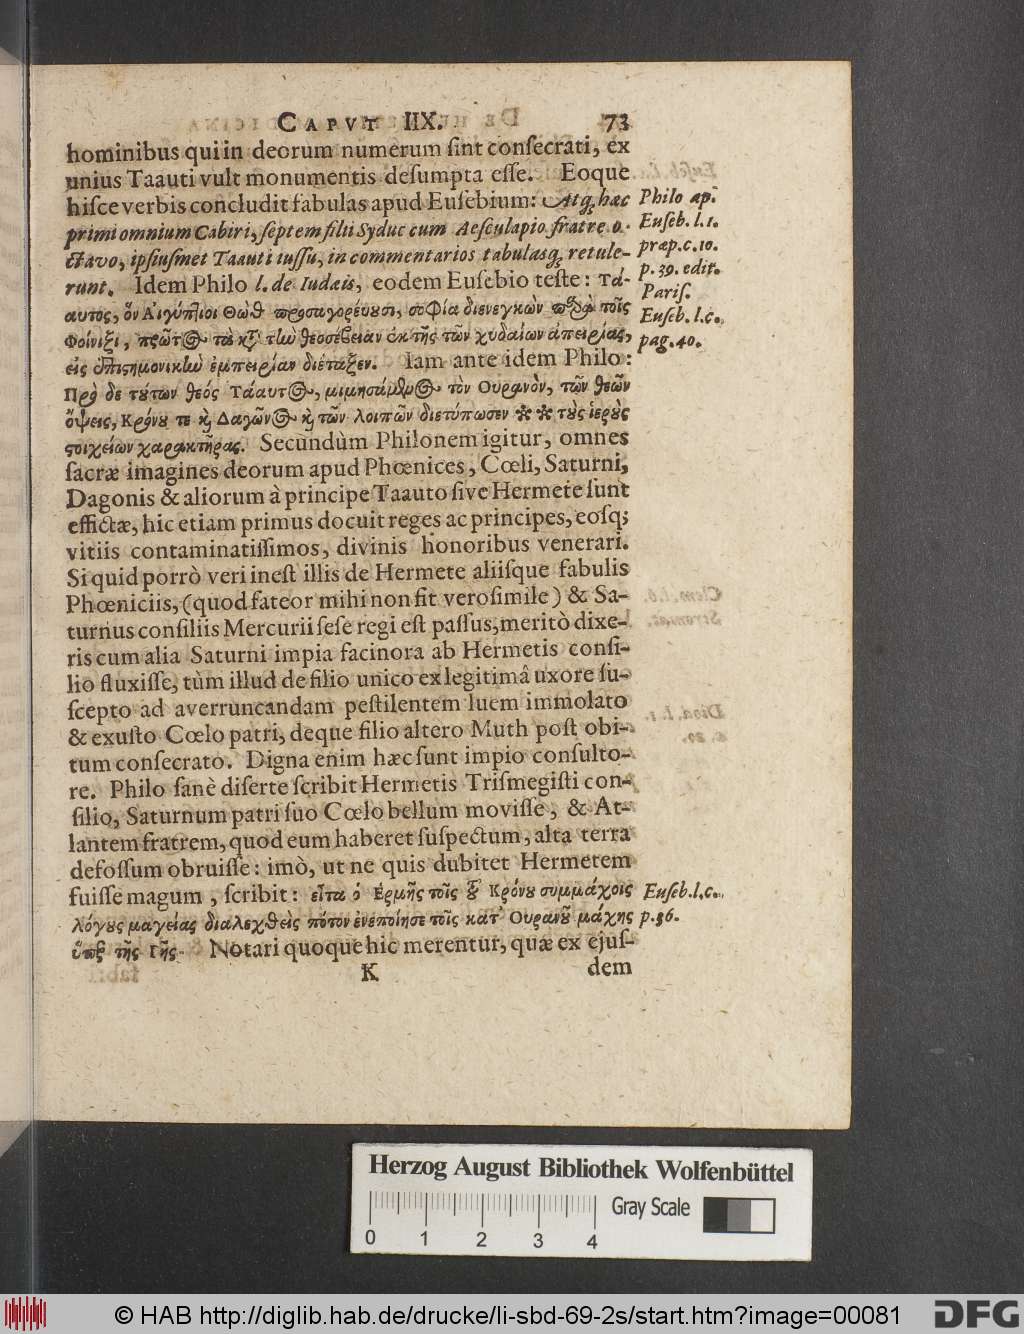 CAPVT IIX. 73
hominibus qui in deorum numerum ſint conſecrati, ex
unius Taauti vult monumentis deſumpta eſſe. Eoque
hiſce verbis concludit fabulas apud Euſebium: Atq; hæc
primi omnium Cabiri, ſeptem filii Syduc cum Aeſculapio fratre o-
ctavo, ipſiuſmet Taauti iuſſu, in commentarios tabulasq; retule-
runt. Idem Philo l. de Iudæis, eodem Euſebio teſte: Τά-
αυτος, ὃν Αἰγύπτιοι Θωὺθ προσαγορεύουσι, σοφίᾳ διενεγκὼν παρὰ τοῖς
Φοίνιξι, πρῶτος τὰ κατὰ τὴν θεοσέβειαν ἐκ τῆς τῶν χυδαίων ἀπειρίας,
εἰς ἐπιστημονικὴν ἐμπειρίαν διέταξεν. Iam ante idem Philo:
Πρὸ δε τούτων θεός Τάαυτος, μιμησάμενος τὸν Ουρανὸν, τῶν θεῶν
ὄψεις, Κρόνου τε καὶ Δαγῶνος καὶ τῶν λοιπῶν διετύπωσεν * * τοὺς ἱεροὺς
στοιχείων χαρακτῆρας. Secundùm Philonem igitur, omnes
ſacræ imagines deorum apud Phœnices, Cœli, Saturni,
Dagonis & aliorum à principe Taauto ſive Hermete ſunt
effictæ, hic etiam primus docuit reges ac principes, eoſq;
vitiis contaminatiſſimos, divinis honoribus venerari.
Si quid porrò veri ineſt illis de Hermete aliiſque fabulis
Phœniciis, (quod fateor mihi non fit veroſimile) & Sa-
turnus conſiliis Mercurii ſeſe regi eſt paſſus, meritò dixe-
ris cum alia Saturni impia facinora ab Hermetis conſi-
lio fluxiſſe, tùm illud de filio unico ex legitimâ uxore ſu-
ſcepto ad averruncandam peſtilentem luem immolato
& exuſto Cœlo patri, deque filio altero Muth poſt obi-
tum conſecrato. Digna enim hæc ſunt impio conſulto-
re. Philo ſanè diſerte ſcribit Hermetis Triſmegiſti con-
ſilio, Saturnum patri ſuo Cœlo bellum moviſſe, & At-
lantem fratrem, quod eum haberet ſuſpectum, alta terra
defoſſum obruiſſe: imò, ut ne quis dubitet Hermetem
fuiſſe magum, ſcribit: εἶτα ὁ Ἑρμῆς τοῖς τοῦ Κρόνου συμμάχοις
λόγους μαγείας διαλεχθεὶς πότον ἐνεποίησε τοῖς κατ' Ουρανοῦ μάχης
ὑπὲρ τῆς Γῆς. Notari quoque hic merentur, quæ ex ejuſ-
K dem
Philo ap.
Euſeb. l. 1.
præp. c. 10.
p. 39. edit.
Pariſ.
Euſeb. l. c.
pag. 40.
Euſeb. l. c.
p. 36.
Herzog August Bibliothek Wolfenbüttel
0 1 2 3 4
Gray Scale
© HAB http://diglib.hab.de/drucke/li-sbd-69-2s/start.htm?image=00081
DFG